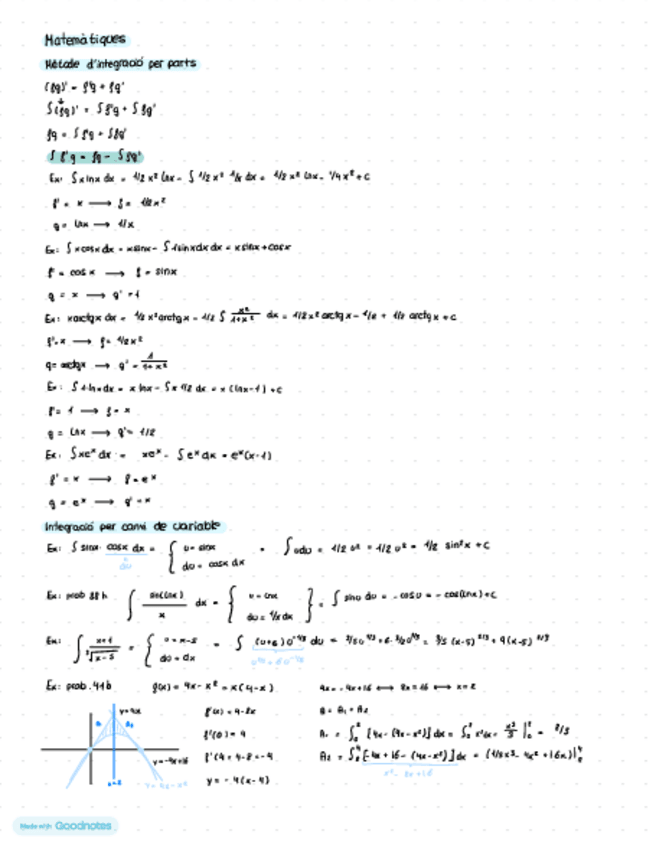 Matemàtiques
Mètode d'integració per parts
(fg)' = f'g + fg'
∫(fg)' = ∫f'g + ∫fg'
fg = ∫f'g + ∫fg'
∫f'g = fg - ∫fg'
Ex: ∫xlnx dx = 1/2 x² lnx - ∫1/2 x² 1/x dx = 1/2 x² lnx - 1/4 x² + C
f' = x ⟶ f = 1/2x²
g = lnx ⟶ 1/x
Ex: ∫xcosx dx = xsinx - ∫1sinxdx dx = xsinx + cosx
f' = cosx ⟶ f = sinx
g = x ⟶ g' = 1
Ex: xarctgx dx = 1/2 x² arctgx - 1/2 ∫ x²/1+x² dx = 1/2x² arctgx - 1/2 + 1/2 arctgx + C
f'=x ⟶ f = 1/2x²
g = arctgx ⟶ g' = 1/1+x²
Ex: ∫1·lnxdx = x lnx - ∫x 1/2 dx = x(lnx-1) + C
f' = 1 ⟶ f = x
g = lnx ⟶ g' = 1/2
Ex: ∫xeˣ dx = xeˣ - ∫eˣ dx = eˣ(x-1)
f' = x ⟶ f = eˣ
g = eˣ ⟶ g' = x
Integració per canvi de variable
Ex: ∫sinx · cosx dx = { u = sinx = ∫udu = 1/2 u² = 1/2 u² = 1/2 sin²x + C
du
du = cosx dx
Ex: prob 38 h ∫ sin(lnx)/x dx = { u = lnx } = ∫sinu du = -cosu = -cos(lnx) + C
du = 1/x dx
Ex: ∫ x+1/³√x-5 = { u = x-5 = ∫ (u+6)u^-1/3 du = 3/5 u^5/3 + 6·3/2 u^2/3 = 3/5 (x-5)^5/3 + 9(x-5)^2/3
du = dx
Ex: prob. 41b g(x) = 4x - x² = x(4-x) 4x = -4x+16 ⟷ 8x = 16 ⟷ x = 2
y=4x
f'(x) = 4-2x
A = A₁ + A₂
f'(0) = 4
A₁ = ∫₀² [4x - (4x-x²)] dx = ∫₀² x²dx = x³/3 |₀² = 8/3
y=-4x+16
f'(4) = 4-8 = -4
A₂ = ∫₂⁴ [-4x+16 - (4x-x²)] dx = (1/3x³ - 4x² + 16x)|₂⁴
x² - 8x + 16
x=2
y = 4x - x²
y = -4(x-4)
Made with Goodnotes